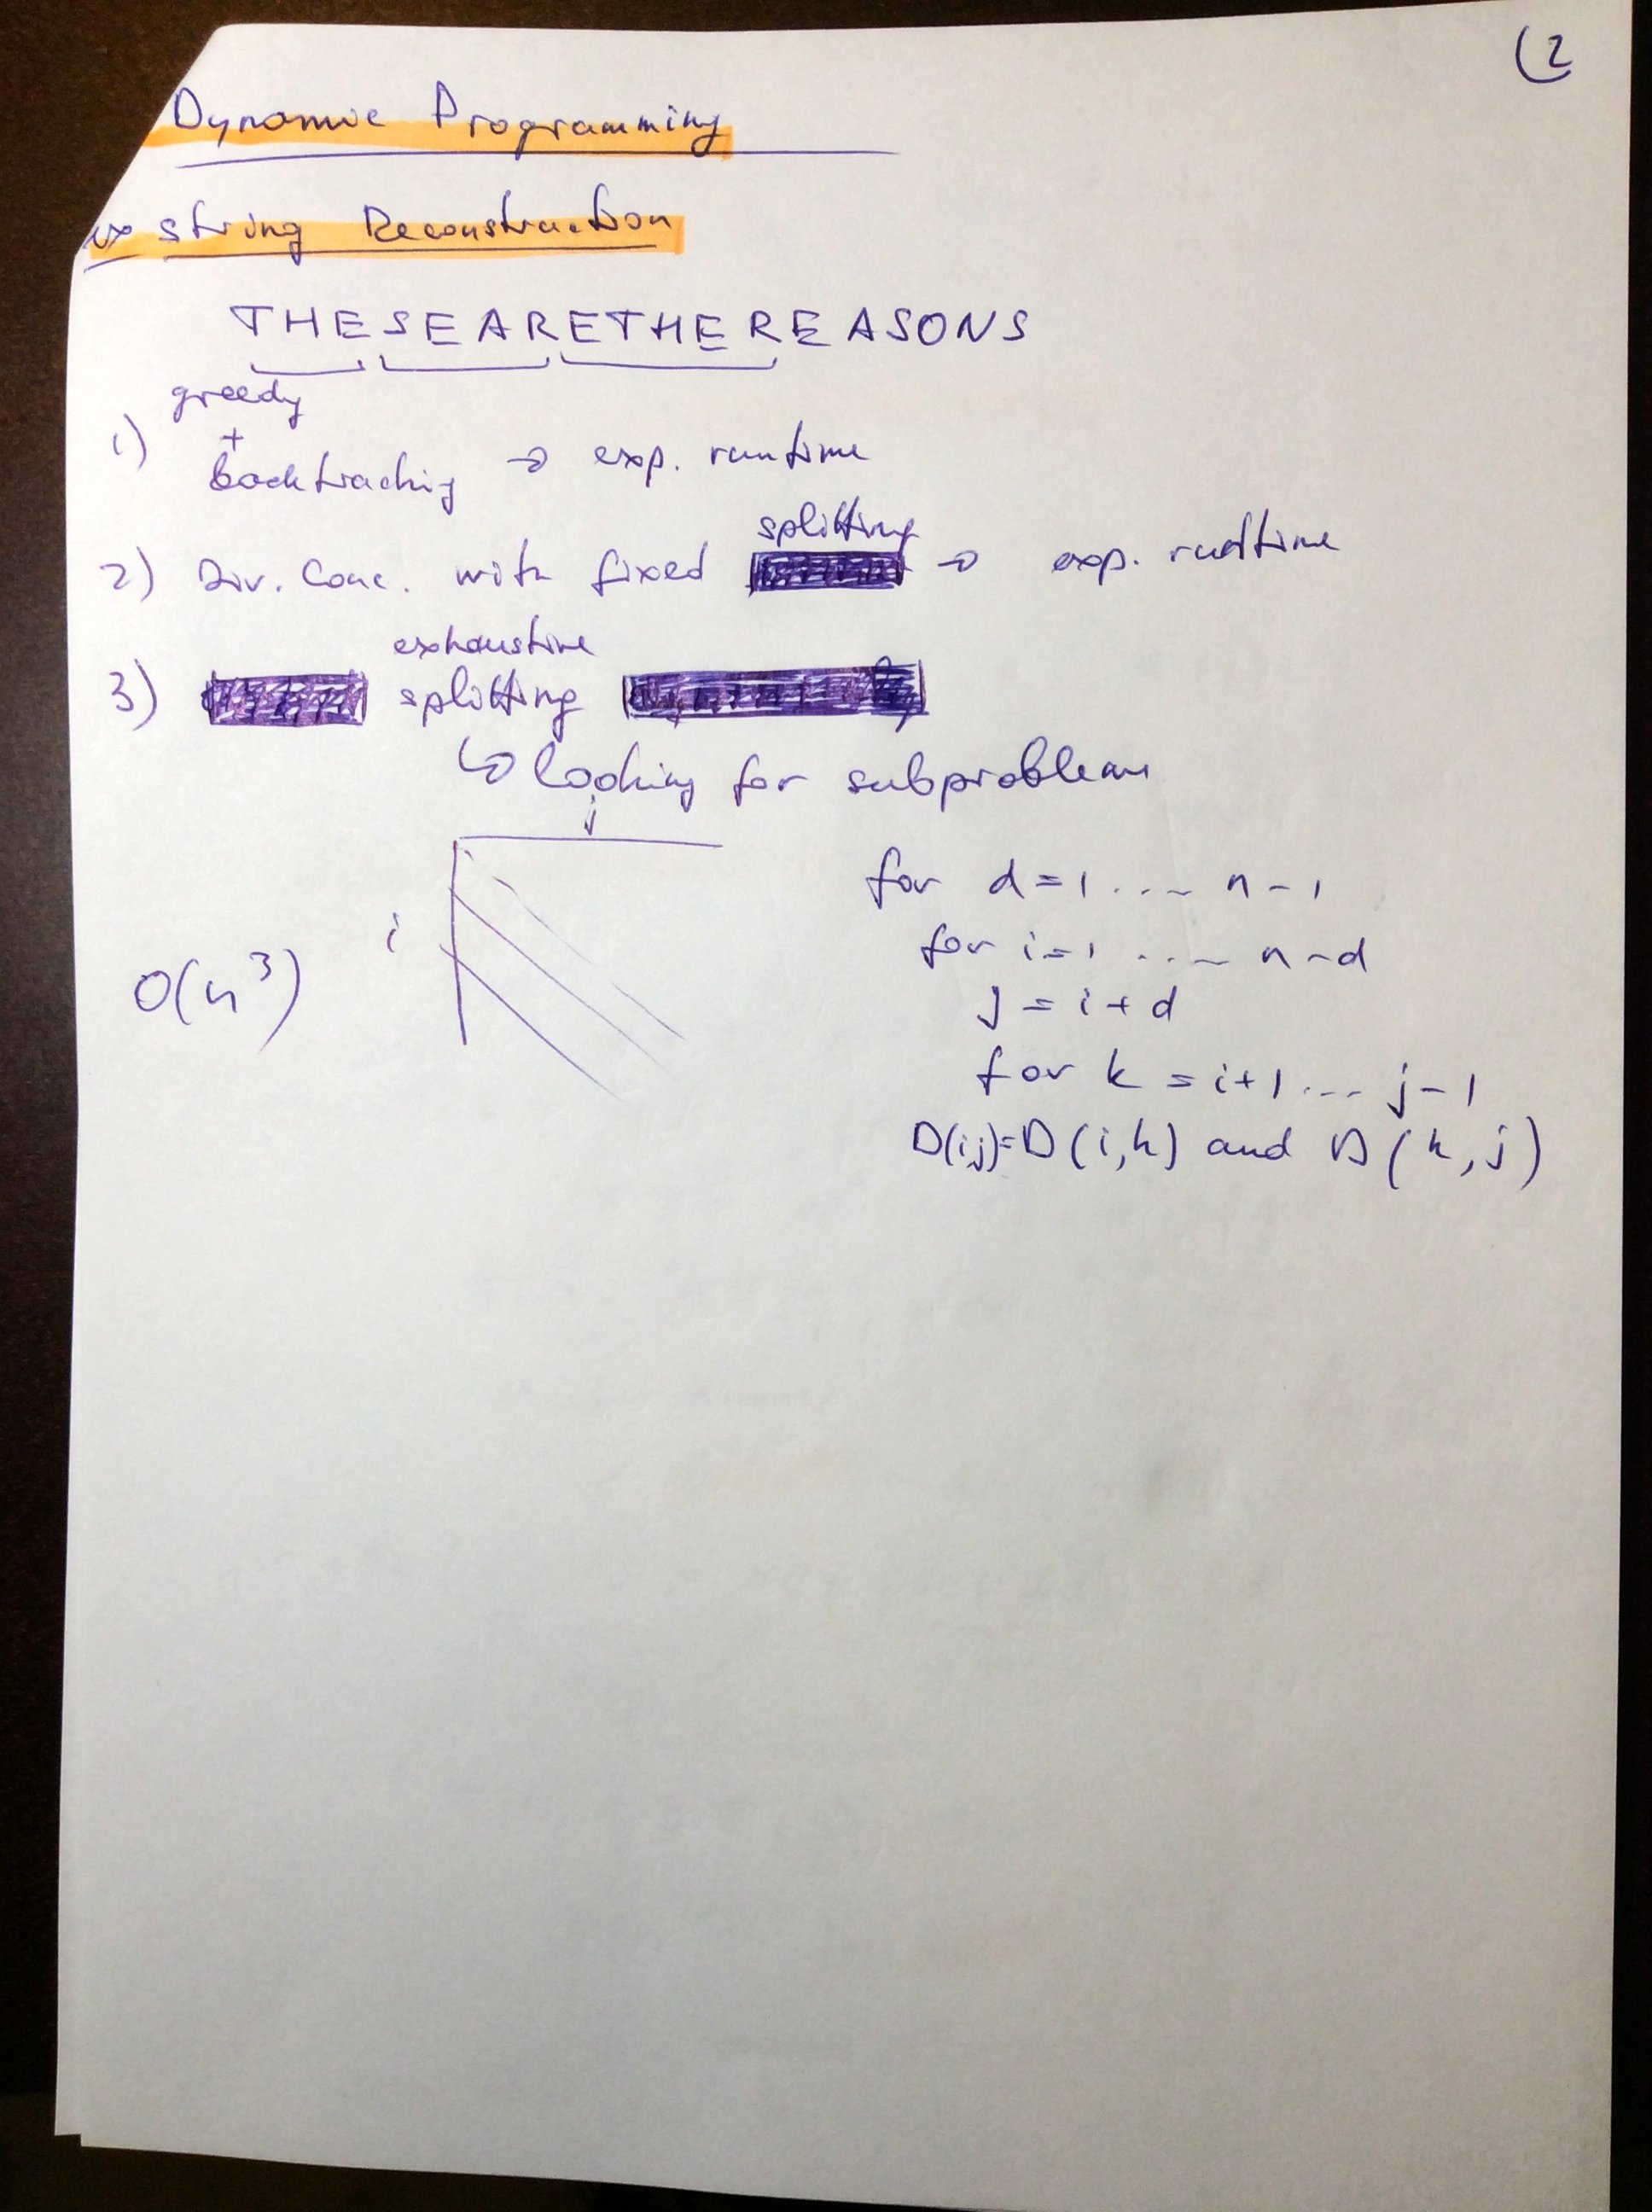 (2
Dynamic Programming
ex string Reconstruction
THESEARETHEREASONS
greedy
1) +
backtracking → exp. runtime
splitting
2) Div. Conc. with fixed → exp. runtime
exhaustive
3) splitting
↳ looking for subproblems
j
i
O(n³)
for d=1 .... n-1
for i=1 .... n-d
j = i+d
for k = i+1 .... j-1
D(i,j)=D(i,k) and D(k,j)